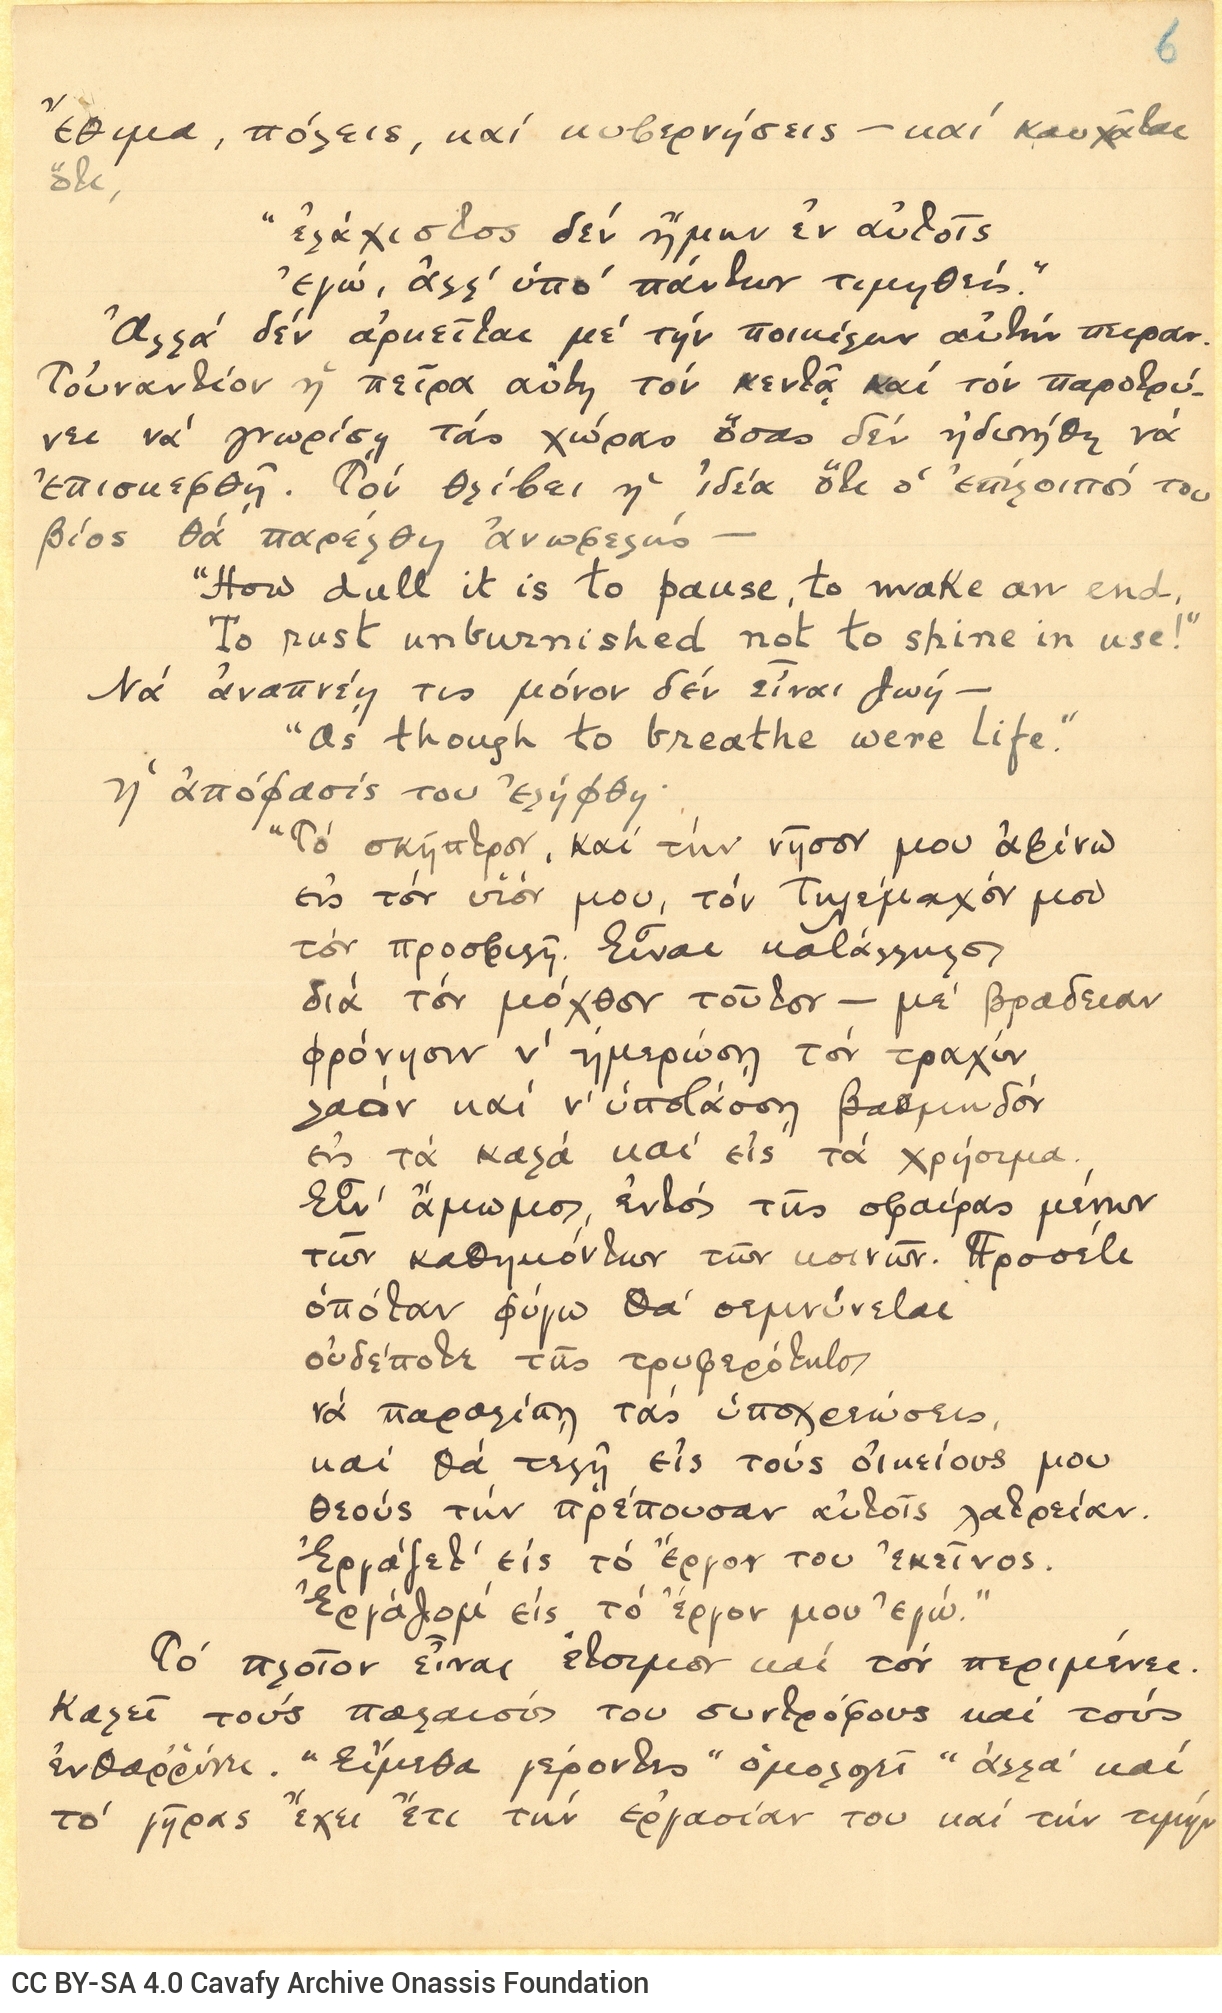 6
Ἔθιμα, πόλεις, καί κυβερνήσεις — καί καυχᾶται
ὅτι,
“ἐλάχιστος δέν ἤμην ἐν αὐτοῖς
ἐγώ, ἀλλ' ὑπό πάντων τιμηθείς.”
Ἀλλά δέν ἀρκεῖται μέ τήν ποικίλην αὐτήν πεῖραν.
Τοὐναντίον ἡ πεῖρα αὕτη τόν κεντᾷ καί τόν παροτρύ-
νει νά γνωρίσῃ τάς χώρας ὅσας δέν ἠδυνήθη νά
ἐπισκεφθῇ. Τόν θλίβει ἡ ἰδέα ὅτι ὁ ἐπίλοιπός του
βίος θά παρέλθῃ ἀνωφελῶς —
“How dull it is to pause, to make an end,
To rust unburnished not to shine in use!”
Νά ἀναπνέῃ τις μόνον δέν εἶναι ζωή —
“As though to breathe were life.”
Ἡ ἀπόφασίς του ἐλήφθη·
“Τό σκῆπτρον, καί τήν νῆσον μου ἀφίνω
εἰς τόν υἱόν μου, τόν Τηλέμαχόν μου
τόν προσφιλῆ. Εἶναι κατάλληλος
διά τόν μόχθον τοῦτον — μέ βραδεῖαν
φρόνησιν ν' ἡμερώσῃ τόν τραχύν
λαόν καί ν' ὑποτάσσῃ βαθμηδόν
εἰς τά καλά καί εἰς τά χρήσιμα.
Εἶν' ἄμωμος, ἐντός τῆς σφαίρας μένων
τῶν καθηκόντων τῶν κοινῶν. Προσέτι
ὁπόταν φύγω θά σεμνύνεται
οὐδέποτε τῆς τρυφερότητος
νά παραλίπῃ τάς ὑποχρεώσεις,
καί θά τελῇ εἰς τούς οἰκείους μου
θεούς τήν πρέπουσαν αὐτοῖς λατρείαν.
Ἐργάζετ' εἰς τό ἔργον του ἐκεῖνος.
Ἐργάζομ' εἰς τό ἔργον μου ἐγώ.”
Τό πλοῖον εἶναι ἕτοιμον καί τόν περιμένει.
Καλεῖ τούς παλαιούς του συντρόφους καί τούς
ἐνθαρρύνει. “Εἴμεθα γέροντες” ὁμολογεῖ “ἀλλά καί
τό γῆρας ἔχει ἔτι τήν ἐργασίαν του καί τήν τιμήν
CC BY-SA 4.0 Cavafy Archive Onassis Foundation